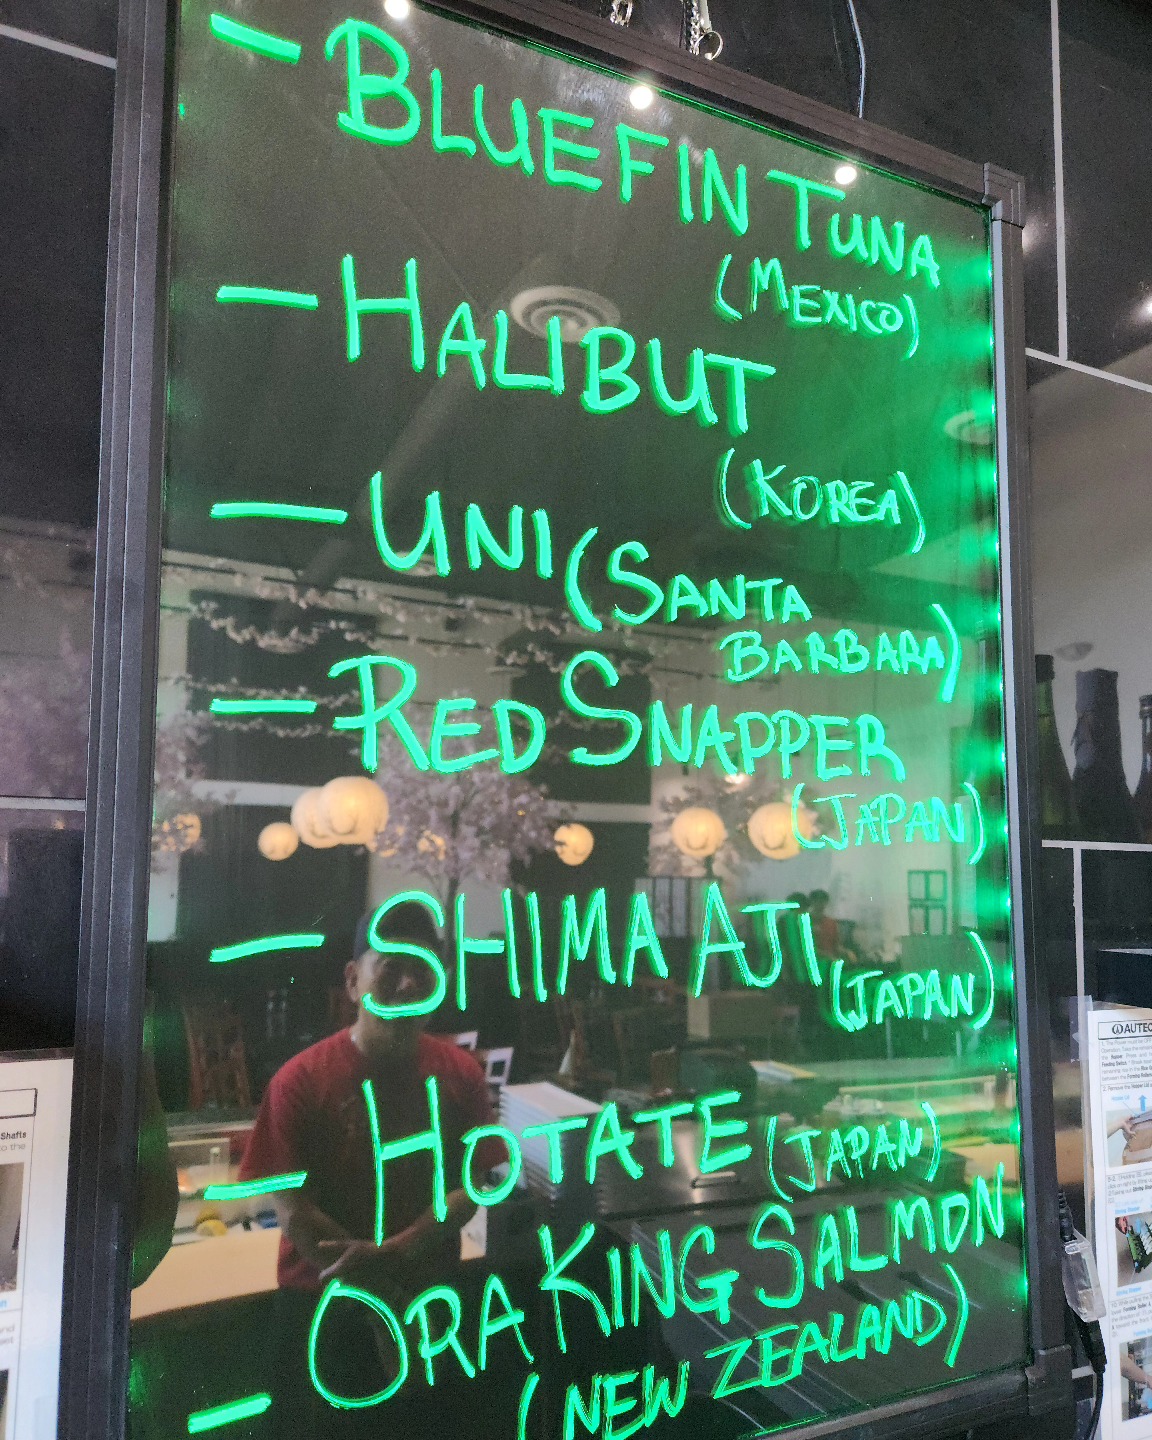 - BLUEFIN TUNA
(MEXICO)
- HALIBUT
(KOREA)
- UNI (SANTA
BARBARA)
- RED SNAPPER
(JAPAN)
- SHIMA AJI (JAPAN)
- HOTATE (JAPAN)
- ORA KING SALMON
(NEW ZEALAND)
AUTEC
Shafts